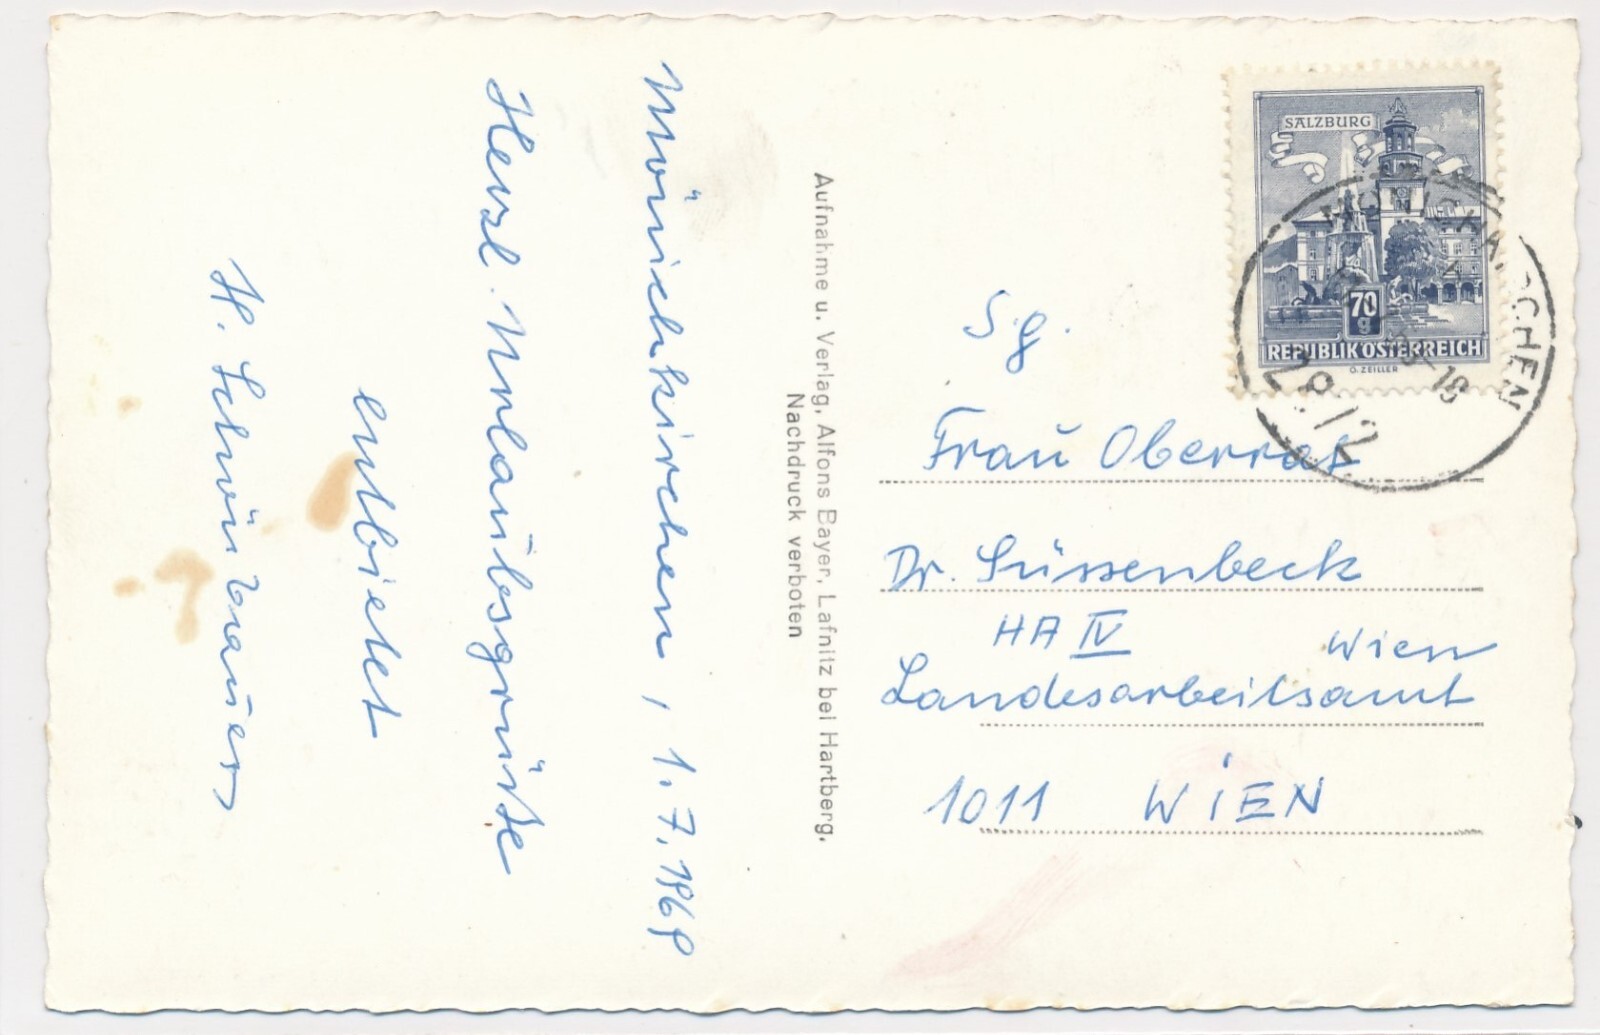 Mönichkirchen, 1.7.1968
Herzl. Urlaubsgrüße
entbietet
H.
Aufnahme u. Verlag, Alfons Bayer, Lafnitz bei Hartberg.
Nachdruck verboten
SALZBURG
70
g
REPUBLIK ÖSTERREICH
O. ZEILLER
S.g.
Frau Oberrat
Dr. Süssenbeck
HA IV Wien
Landesarbeitsamt
1011 WIEN